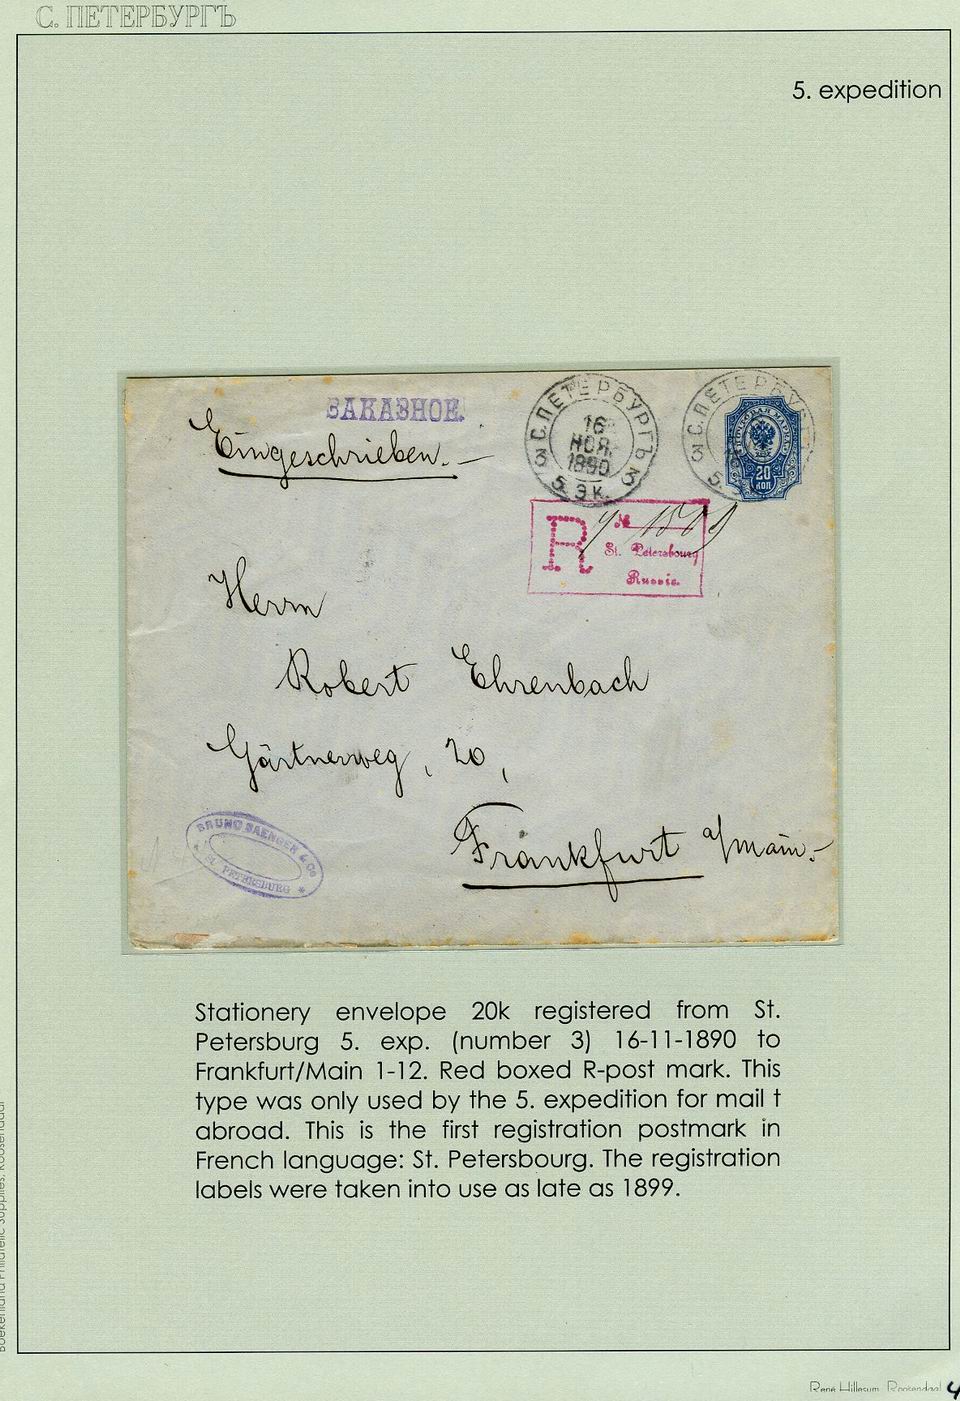 С. ПЕТЕРБУРГЪ
5. expedition
ЗАКАЗНОЕ.
Eingeschrieben.
С.ПЕТЕРБУРГЪ
16
НОЯ.
1890
3 3
5. ЭК.
С.ПЕТЕРБУ
3
5.
ПОЧТОВАЯ МАРКА
20
КОП
R
№ 1509
St. Petersbourg
Russie.
Herrn
Robert Ehrenbach
Gärtnerweg, 20,
Frankfurt a/Main.
BRUNO SAENGER & Co
* ST. PETERSBURG *
Stationery envelope 20k registered from St.
Petersburg 5. exp. (number 3) 16-11-1890 to
Frankfurt/Main 1-12. Red boxed R-post mark. This
type was only used by the 5. expedition for mail t
abroad. This is the first registration postmark in
French language: St. Petersbourg. The registration
labels were taken into use as late as 1899.
Philatelic Supplies, Roosendaal
René Hillesum, Roosendaal
4